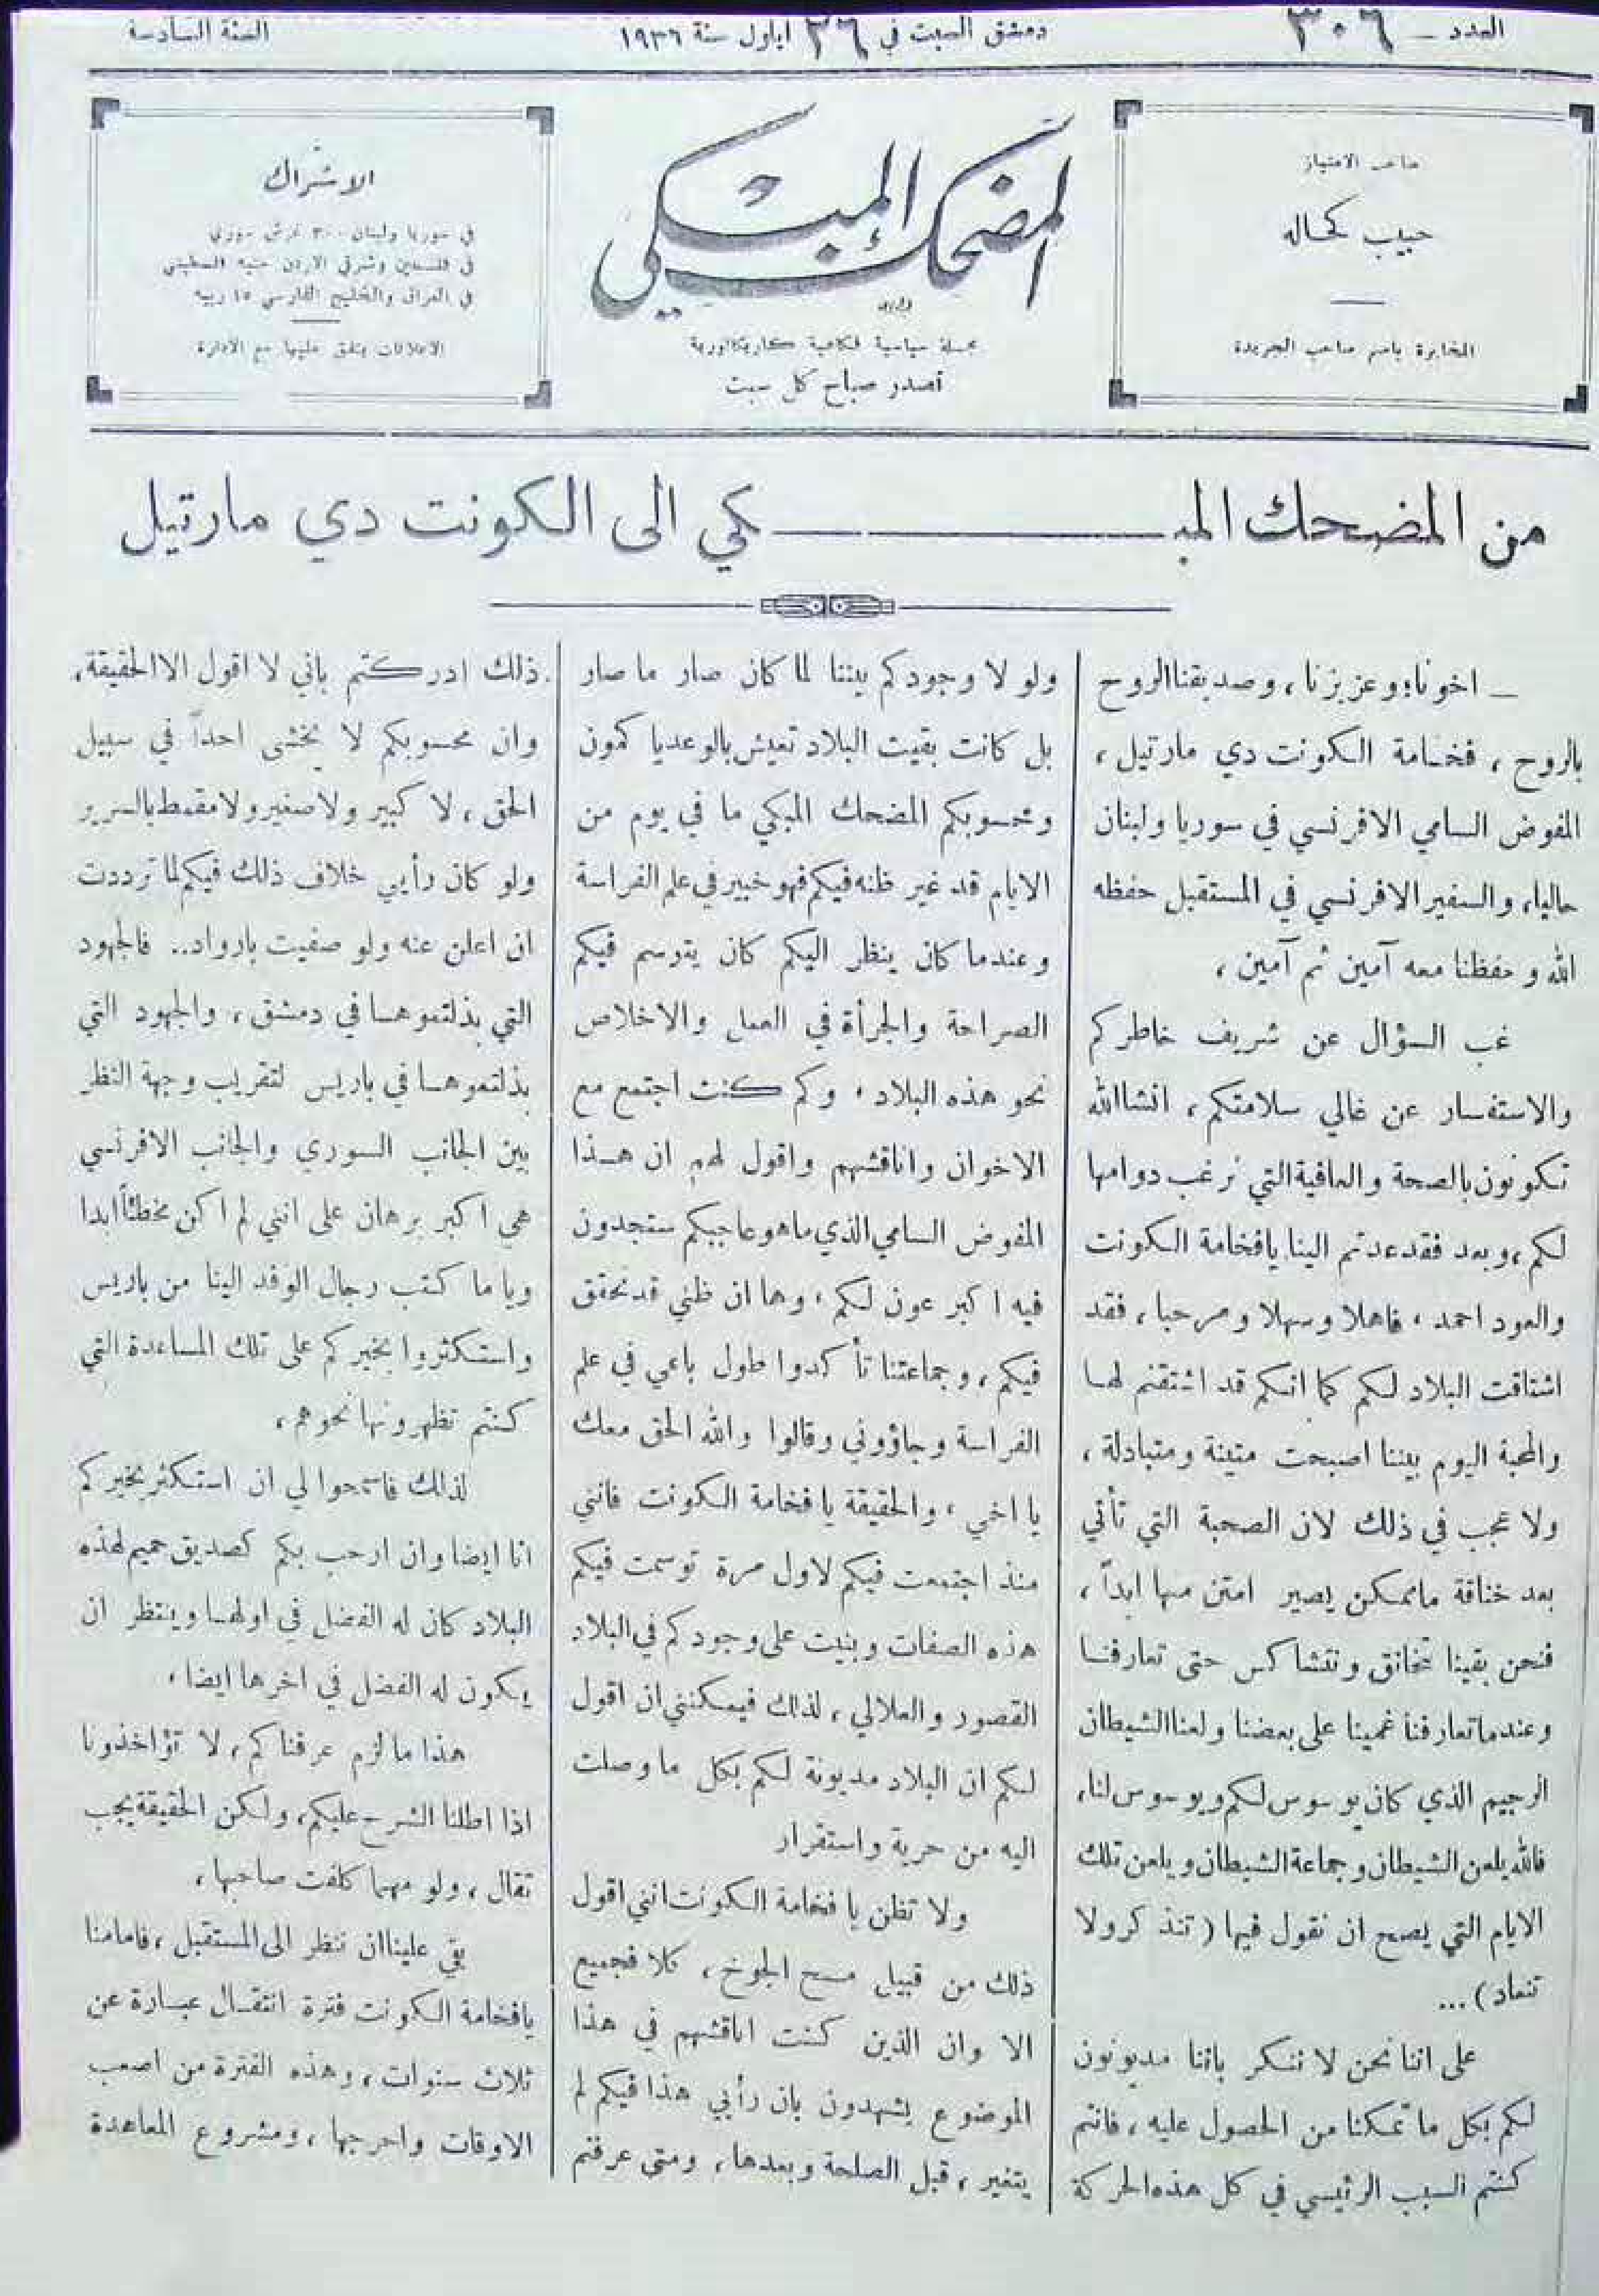 العدد – ٣٠٦
دمشق السبت في ٢٦ ايلول سنة ١٩٣٦
السنة السادسة
صاحب الامتياز
حبيب كحاله
المخابرة باسم صاحب الجريدة
المضحك المبكي
مجلة سياسية فكاهية كاريكاتورية
تصدر صباح كل سبت
الاشتراك
في سوريا ولبنان ٣٠٠ غرش سوري
في فلسطين وشرقي الاردن جنيه فلسطيني
في العراق والخليج الفارسي ١٥ ربيه
الاعلانات يتفق عليها مع الادارة
من المضحك المبـــكي الى الكونت دي مارتيل
– اخونا، وعزيزنا، وصديقنا الروح
بالروح، فخامة الكونت دي مارتيل،
المفوض السامي الافرنسي في سوريا ولبنان
حاليا، والسفير الافرنسي في المستقبل حفظه
الله وحفظنا معه آمين ثم آمين،
غب السؤال عن شريف خاطركم
والاستفسار عن غالي سلامتكم، انشاالله
تكونون بالصحة والعافية التي نرغب دوامها
لكم، وبعد فقد عدتم الينا يافخامة الكونت
والعود احمد، فاهلا وسهلا ومرحبا، فقد
اشتاقت البلاد لكم كما انكم قد اشتقتم لها
والمحبة اليوم بيننا اصبحت متينة ومتبادلة،
ولا عجب في ذلك لان الصحبة التي تأتي
بعد خناقة ماممكن يصير امتن منها ابداً،
فنحن بقينا نتخانق ونتشاكس حتى تعارفنا
وعندما تعارفنا غمينا على بعضنا ولعنا الشيطان
الرجيم الذي كان يوسوس لكم ويوسوس لنا،
فالله يلعن الشيطان وجماعة الشيطان ويلعن تلك
الايام التي يصح ان نقول فيها (تنذكر ولا
تنعاد)...
على اننا نحن لا ننكر باننا مديونون
لكم بكل ما تمكنا من الحصول عليه، فانتم
كنتم السبب الرئيسي في كل هذه الحركة
ولو لا وجودكم بيننا لما كان صار ما صار
بل كانت بقيت البلاد تعيش بالوعد يا كمون
ومحسوبكم المضحك المبكي ما في يوم من
الايام قد غير ظنه فيكم فهو خبير في علم الفراسة
وعندما كان ينظر اليكم كان يتوسم فيكم
الصراحة والجرأة في العمل والاخلاص
نحو هذه البلاد، وكم كنت اجتمع مع
الاخوان واناقشهم واقول لهم ان هذا
المفوض السامي الذي ماهو عاجبكم ستجدون
فيه اكبر عون لكم، وها ان ظني قد تحقق
فيكم، وجماعتنا تأكدوا طول باعي في علم
الفراسة وجاؤوني وقالوا والله الحق معك
يا اخي، والحقيقة يا فخامة الكونت فانني
منذ اجتمعت فيكم لاول مرة توسمت فيكم
هذه الصفات وبنيت على وجودكم في البلاد
القصور والعلالي، لذلك فيمكنني ان اقول
لكم ان البلاد مديونة لكم بكل ما وصلت
اليه من حرية واستقرار
ولا تظن يا فخامة الكونت انني اقول
ذلك من قبيل مسح الجوخ، كلا فجميع
الاوان الذين كنت اناقشهم في هذا
الموضوع يشهدون بان رأيي هذا فيكم لم
يتغير، قبل الصلحة وبعدها، ومتى عرفتم
ذلك ادركتم باني لا اقول الا الحقيقة،
وان محسوبكم لا يخشى احداً في سبيل
الحق، لا كبير ولا صغير ولا مقمط بالسرير
ولو كان رأيي خلاف ذلك فيكم لما ترددت
ان اعلن عنه ولو صفيت بارواد.. فالجهود
التي بذلتموها في دمشق، والجهود التي
بذلتموها في باريس لتقريب وجهة النظر
بين الجانب السوري والجانب الافرنسي
هي اكبر برهان على انني لم اكن مخطئاً ابدا
وياما كتب رجال الوفد الينا من باريس
واستكثروا بخيركم على تلك المساعدة التي
كنتم تظهرونها نحوهم،
لذلك فاسمحوا لي ان استكثر بخيركم
انا ايضا وان ارحب بكم كصديق حميم لهذه
البلاد كان له الفضل في اولها وينتظر ان
يكون له الفضل في اخرها ايضا،
هذا ما لزم عرفناكم، لا تؤاخذونا
اذا اطلنا الشرح عليكم، ولكن الحقيقة يجب
تقال، ولو مهما كلفت صاحبها،
بقي علينا ان ننظر الى المستقبل، فامامنا
يافخامة الكونت فترة انتقال عبارة عن
ثلاث سنوات، وهذه الفترة من اصعب
الاوقات واحرجها، ومشروع المعاهدة